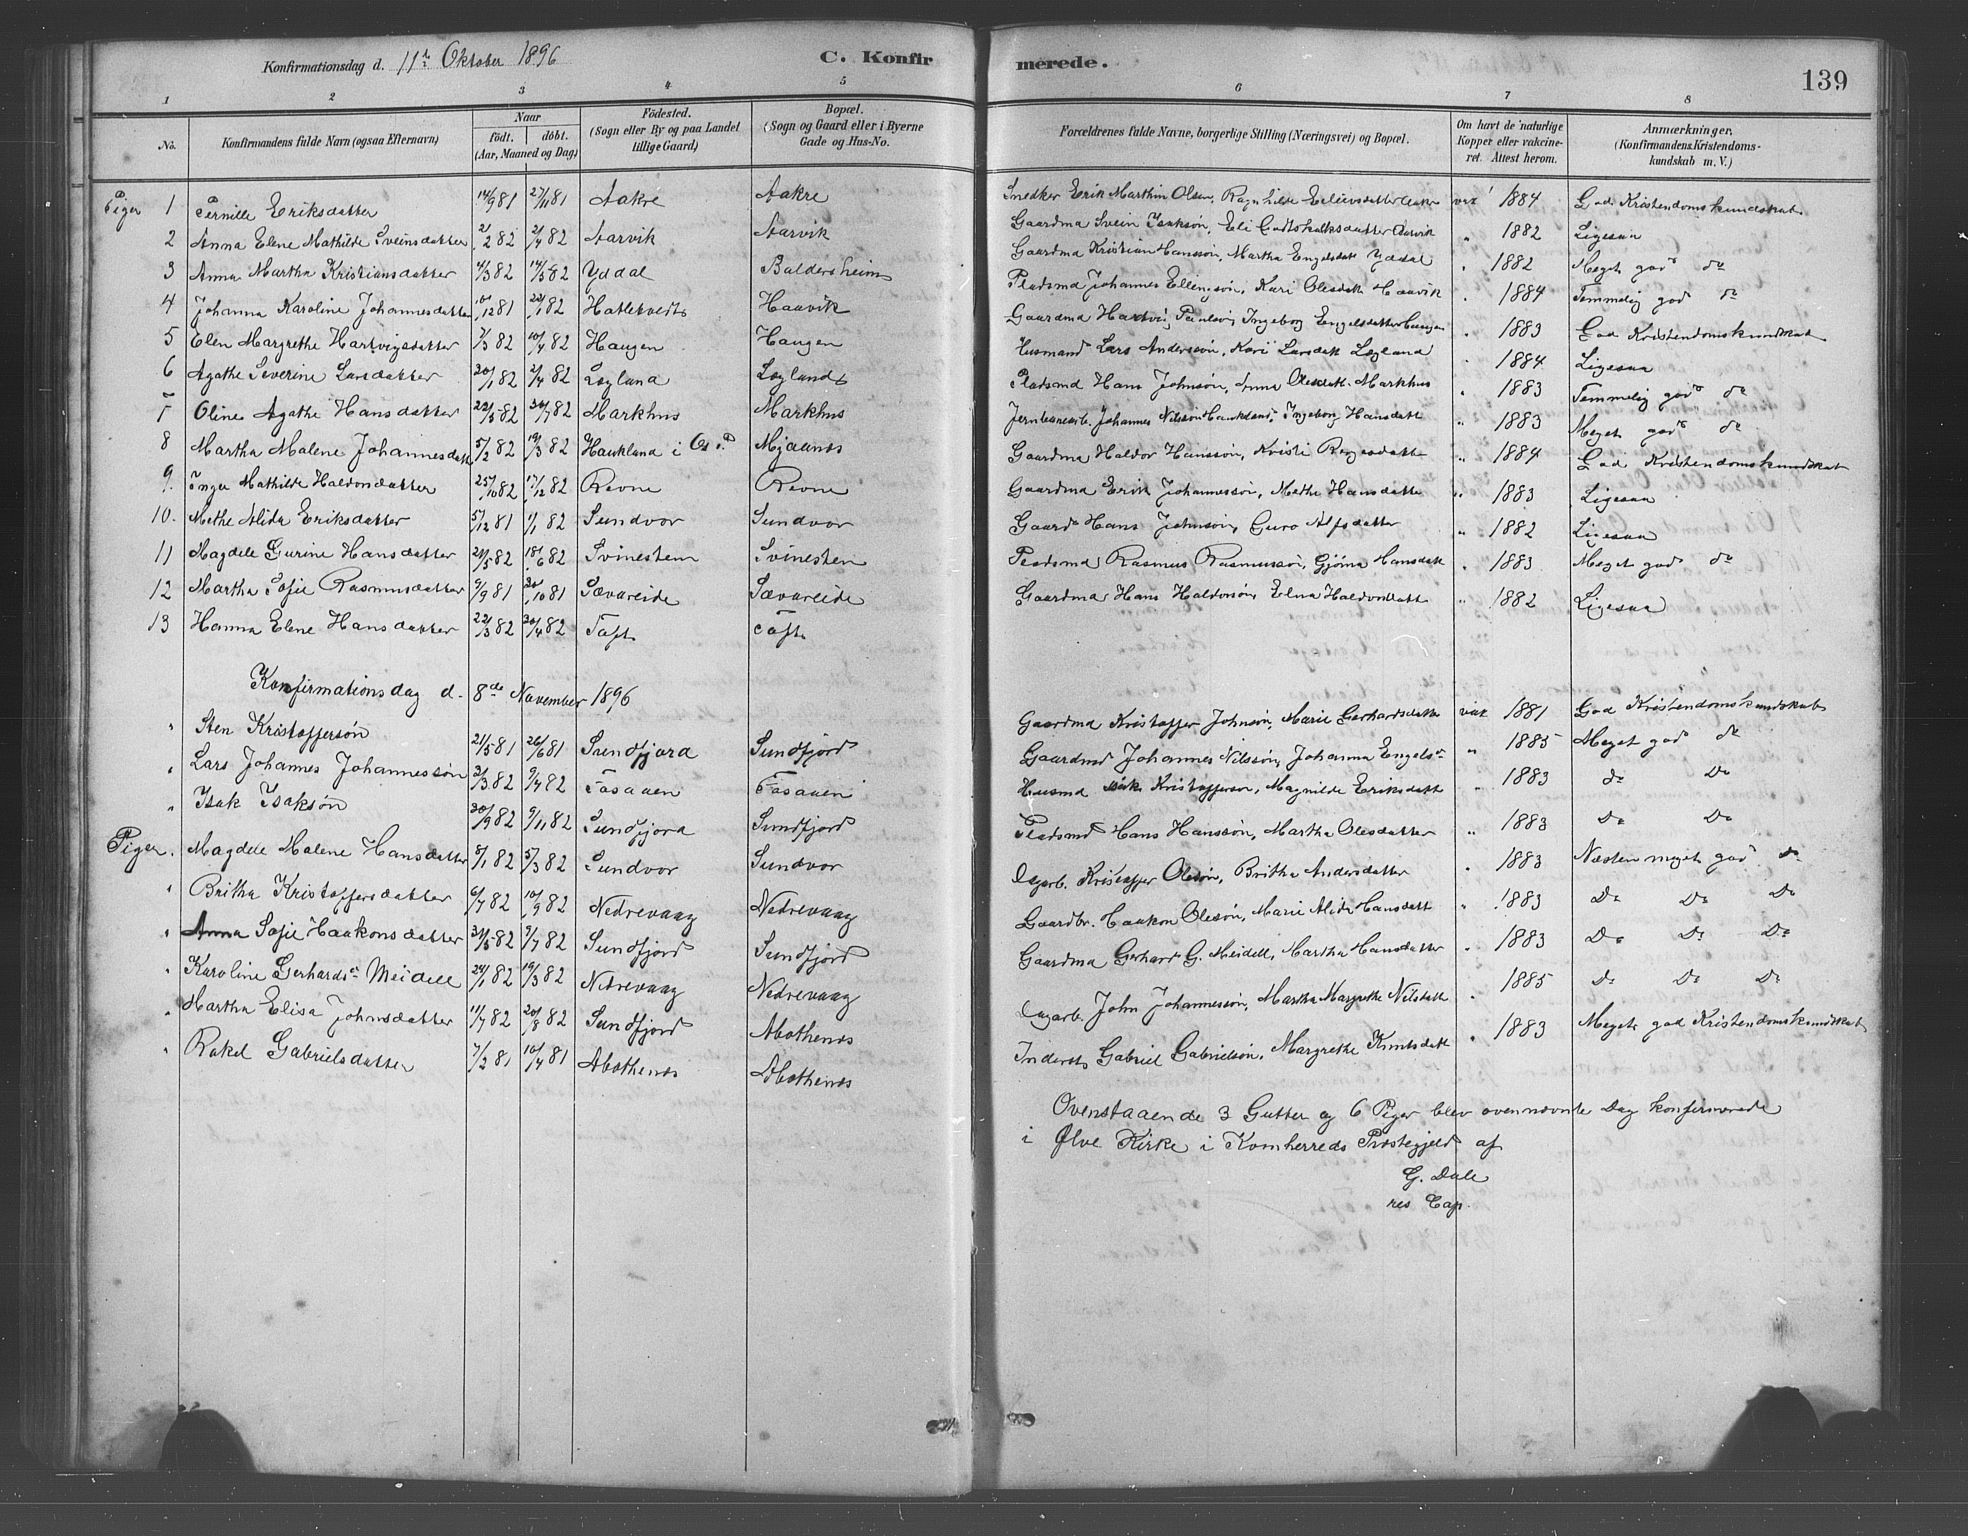 Konfirmationsdag d. 11te Oktober 1896 C. Konfirmerede. 139
1 2 3 4 5 6 7 8
No. Konfirmandens fulde Navn (ogsaa Efternavn) Naar født. døbt. (Aar, Maaned og Dag) Fødested. (Sogn eller By og paa Landet tillige Gaard) Bopæl. (Sogn og Gaard eller i Byerne Gade og Hus-No. Forældrenes fulde Navne, borgerlige Stilling (Næringsvei) og Bopæl. Om havt de naturlige Kopper eller vakcineret. Attest herom. Anmærkninger. (Konfirmandens Kristendomskundskab m. V.)
Piger 1 Pernille Eriksdatter 14/9 81 27/11 81 Aakre Aakre Smedker Erik Marthin Olsen, Ragnhilde Eelievsdatter Aakre vax 1884 God Kristendomskundskab
2 Anna Elene Mathilde Sveinsdatter 21/2 82 21/4 82 Aarvik Aarvik Gaardma Svein Isaksøn, Eli Godtskalksdatter Aarvik " 1882 Ligesaa
3 Anna Martha Kristiansdatter 4/3 82 14/5 82 Yddal Baldersheim Gaardma Kristian Hansøn, Martha Engelsdatt Yddal " 1882 Meget god do
4 Johanna Karoline Johannesdatter 10/12 81 22/1 82 Hatlekvedt Haavik Pladsma Johannes Ellingsøn, Kari Olesdatt Haavik " 1884 Temmelig god do
5 Elen Margrethe Hartvigsdatter 7/3 82 10/4 82 Haugen Haugen Gaardma Hartvig Paulsøn, Ingeborg Engelsdatter Haugen " 1883 God Kristendomskundskab
6 Agathe Severine Larsdatter 20/1 82 2/4 82 Løgland Løgland Husmand Lars Anderssøn, Kari Larsdatt Løgland " 1884 Ligesaa
7 Oline Agathe Hansdatter 22/5 82 30/7 82 Markhus Markhus Pladsmd Hans Johnsøn, Anna Olesdatt. Markhus " 1883 Temmelig god do
8 Martha Malene Johannesdatt 5/2 82 19/3 82 Haukland i Os P. Mjaanes Jernbanearb. Johannes Nilssøn Haukland, Ingeborg Hansdatt " 1883 Meget god do
9. Inger Mathilde Haldorsdatter 25/10 82 17/12 82 Revne Revne Gaardma Haldor Hanssøn, Kristi Børgesdatter " 1884 God Kristendomskundskab
10. Methe Alida Eriksdatter 5/12 81 1/1 82 Sundvor Sundvor Gaardma Erik Johannessøn, Methe Hansdatter " 1883 Ligesaa
11 Magdele Gurine Hansdatter 21/5 82 18/6 82 Svinesten Svinesten Gaard Hans Johnsøn, Guro Alfsdatter " 1882 Ligesaa
12 Martha Sofie Rasmusdatter 9/9 81 30/10 81 Sævareide Sævareide Pladsmd Rasmus Rasmussøn, Gjøna Hansdatt " 1883 Meget god do
13 Hanna Elene Hansdatter 22/3 82 30/4 82 Toft Toft Gaardma Hans Haldorsøn, Elena Haldorsdatt " 1882 Ligesaa
Konfirmationsdag d. 8de November 1896
" Sten Kristoffersøn 21/5 81 26/6 81 Sundfjord Sundfjord Gaardma Kristoffer Johnsøn, Marie Gerhardsdatter vax 1881 God Kristendomskundskab
" Lars Johannes Johannessøn 3/3 82 9/4 82 Tosaaen Tosaaen Gaardmd Johannes Nilssøn, Johanna Engelsd " 1885 Meget god do
" Isak Isaksøn 30/9 82 9/11 82 Sundfjord Sundfjord Husmd Isak Kristofferson, Magnilde Eriksdatt " 1883 do Do
Piger. Magdele Malene Hansdatter 8/1 82 5/3 82 Sundvor Sundvor Pladsmd Hans Hanssøn, Martha Olesdatter " 1883 Do Do
" Britha Kristoffersdatter 6/7 82 10/9 82 Nedrevaag Nedrevaag Dagarb. Kristoffer Olesøn, Britha Andersdatter " 1883 Næsten meget god do
" Anna Sofie Haakonsdatter 31/5 82 9/7 82 Sundfjord Sundfjord Gaardbr. Haakon Olesøn, Marie Alida Hansdatt " 1883 Do Do Do
" Karoline Gerhardsd Meidell 24/1 82 19/3 82 Nedrevaag Nedrevaag Gaardma Gerhard G. Meidell, Martha Hansdatter " 1883 Do Do Do
" Martha Elisa Johnsdatter 11/7 82 20/8 82 Sundfjord Mothenes Dagarb. John Johannessøn, Martha Margrethe Nilsdatt " 1885 Do Do Do
" Rakel Gabrielsdatter 7/2 81 10/4 81 Mothenes Mothenes Inderst Gabriel Gabrielsøn, Margrethe Knutsdatt " 1883 Meget god Kristendomskundskab
Ovenstaaende 3 Gutter og 6 Piger blev ovennævnte Dag konfirmerede
i Ølve Kirke i Kvinherreds Præstegjeld af
G. Dale
res Cap.